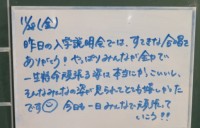 11/24(金)
昨日の入学説明会では、すてきな合唱を
ありがとう! やっぱりみんなが全力で
一生懸命頑張る姿は本当にかっこいいし、
そんなみんなの姿が見られてとても嬉しかった
です 今日も一日みんなで頑張って
いこう!!